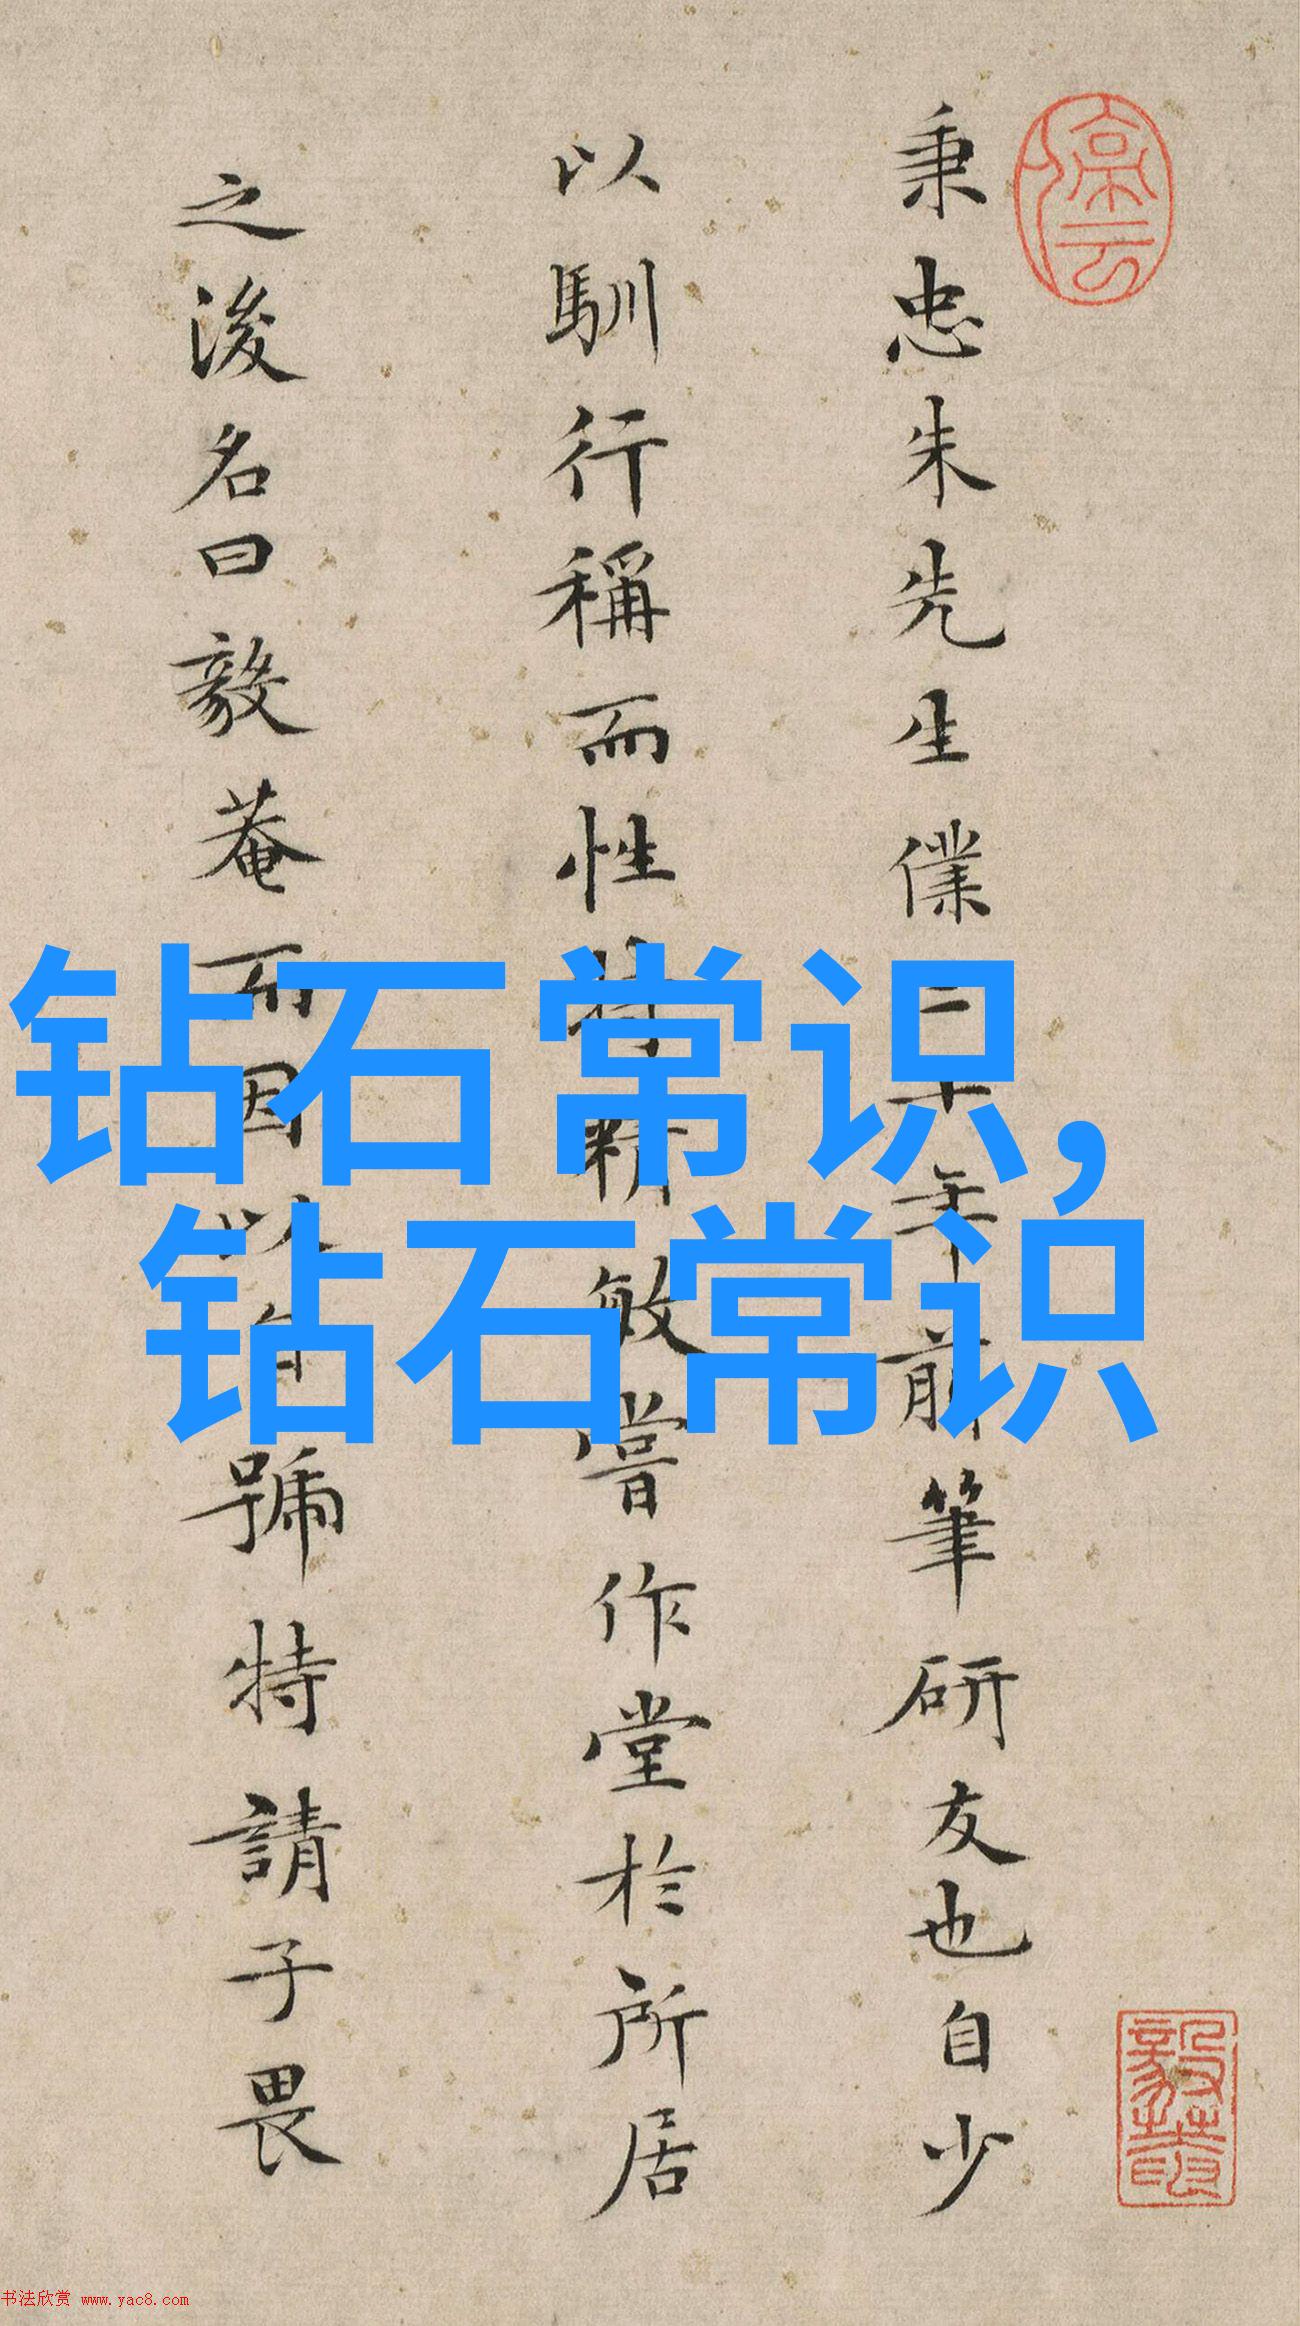 秉忠朱先生僕三十年前筆研友也自少
以馴行稱而性特精敏嘗作堂於所居
之後名曰毅菴而因以自號特請子畏
钻石常识,
钻石常识
书法欣赏 www.yac8.com